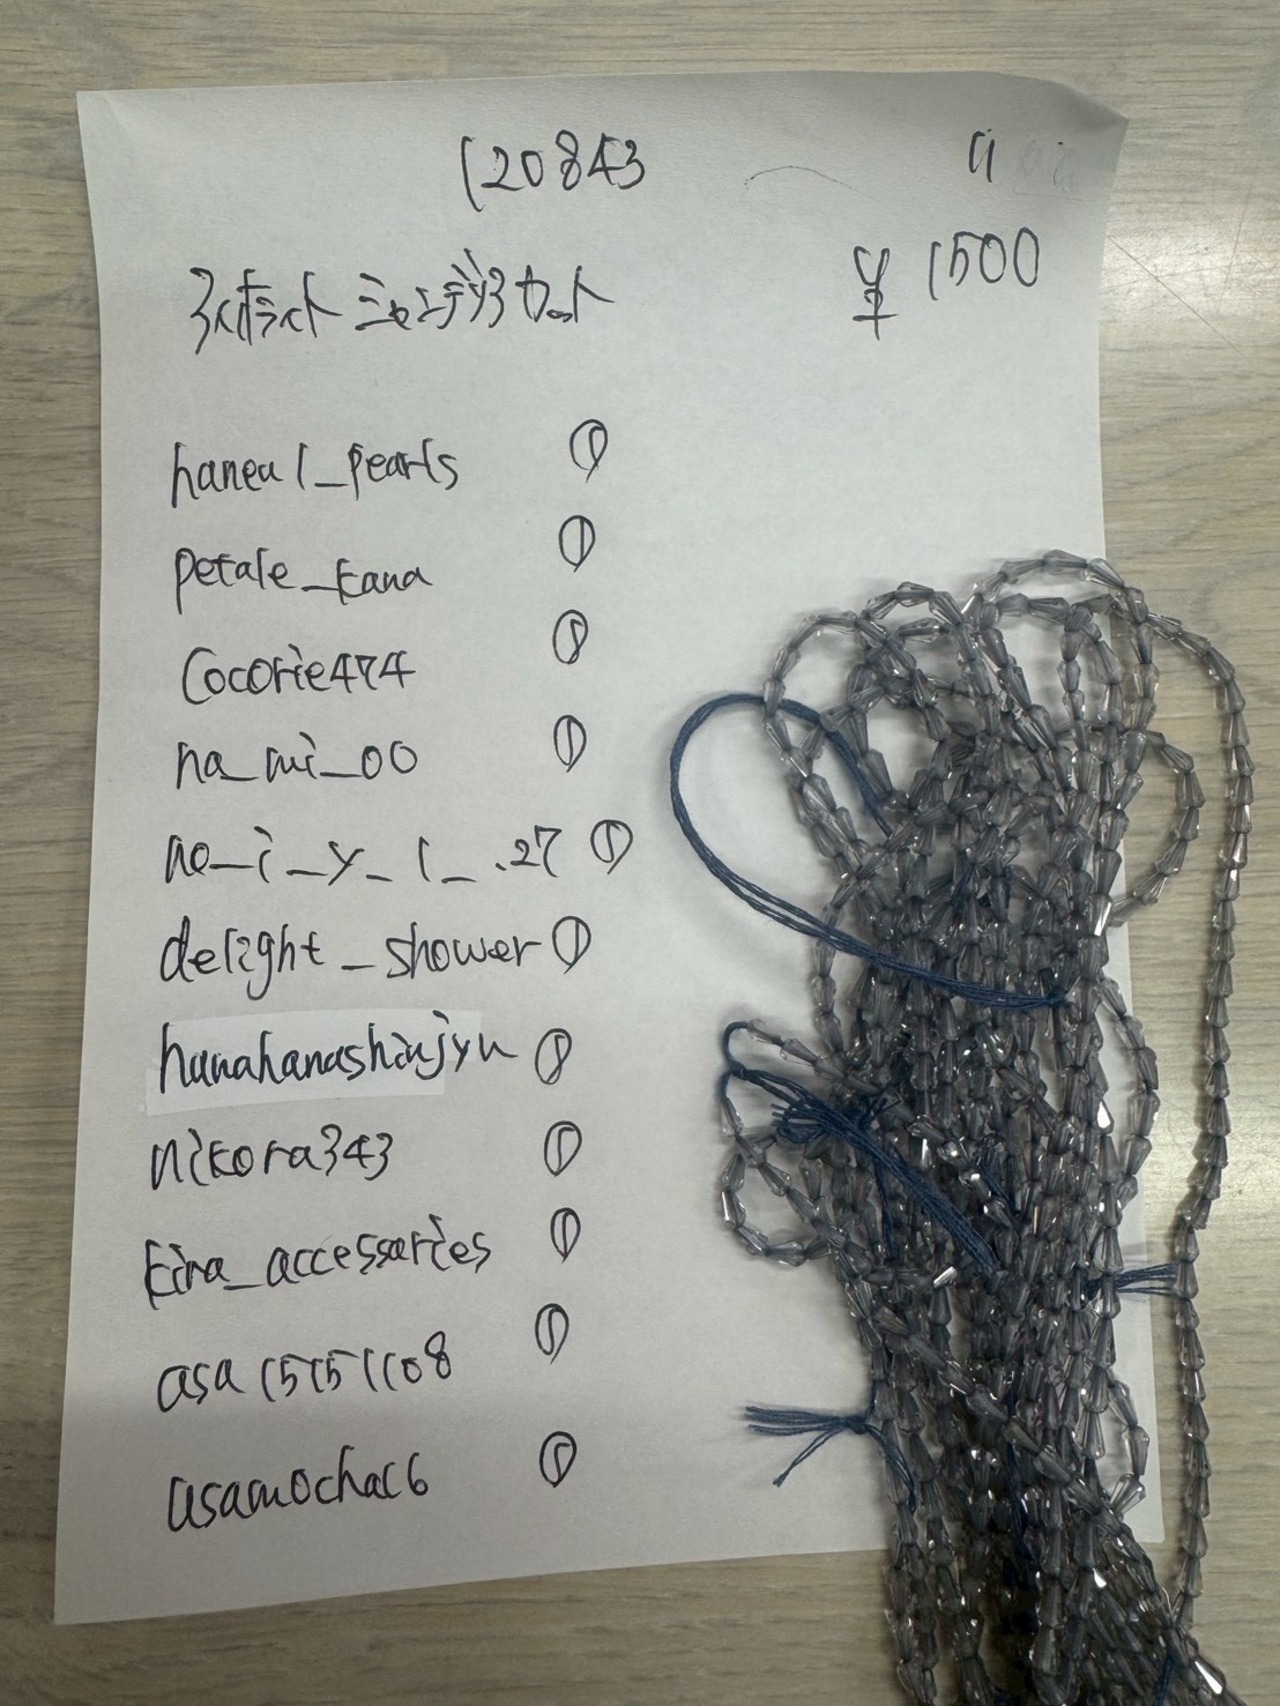 120843 a
アイオライト シャンデリアカット ¥1500
haneul_pearls ①
petale_kana ①
cocorie474 ①
na_mi_00 ①
no_i_y_1_.27 ①
delight_shower ①
hanahanashinjyu ①
nikora343 ①
kira_accessaries ①
asa15151108 ①
asamocha16 ①